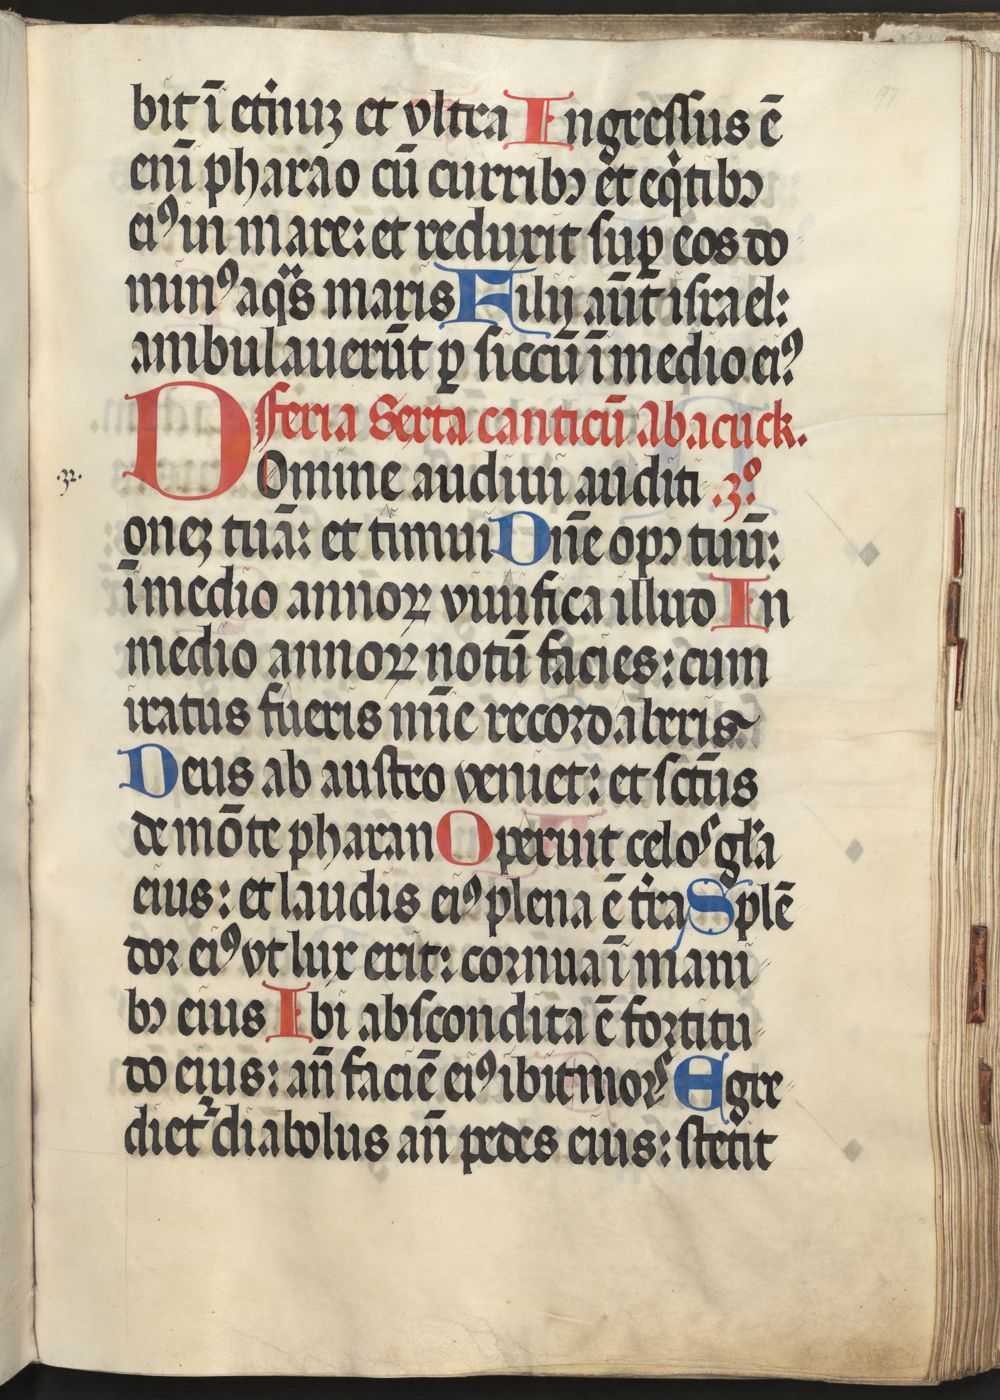 bit ī etnuʒ et vltra Ingressus ē
eni pharao cū curribꝰ et eqͥtibꝰ
eiꝰ in mare: et reduxit suꝑ eos do
minꝰ aqͣs maris Filij aūt israel:
ambulauerūt ꝑ siccū ī medio eiꝰ
feria Sexta canticū Abacuck.
.32. DOmine audiui auditi .3ꝰ.
oneʒ tuā: et timui Dn̄e opꝰ tuū:
ī medio annoꝝ viuifica illud In
medio annoꝝ notū facies: cum
iratus fueris mīe recordaberis
Deus ab austro veniet: et sctūs
de mōte pharan Operuit celos gl̄a
eius: et laudis eiꝰ plena ē tͥra Splē
dor eiꝰ vt lux erit: cornua ī mani
bꝰ eius Ibi abscondita ē fortitu
do eius: an̄ faciē eiꝰ ibit mors Egre
dietᷣ diabolus an̄ pedes eius: stetit